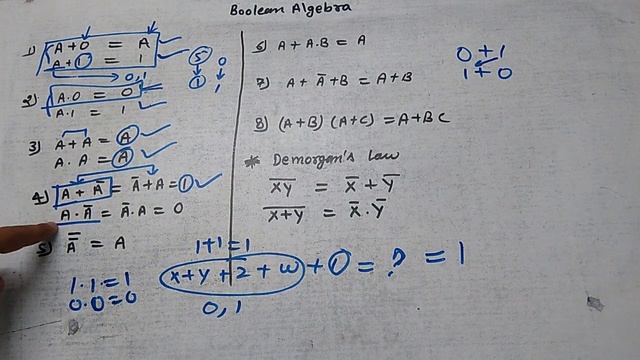 Boolean Algebra
1) A + 0 = A
A + 1 = 1
0, 1
2) A . 0 = 0
A . 1 = 1
3) A + A = A
A . A = A
4) A + A̅ = A̅ + A = 1
A . A̅ = A̅ . A = 0
5) A̿ = A
1 . 1 = 1
0 . 0 = 0
5 0
1 1
6) A + A . B = A
7) A + A̅ + B = A + B
8) (A + B) (A + C) = A + B C
* Demorgan's Law
X̅Y̅ = X̅ + Y̅
X̅+̅Y̅ = X̅ . Y̅
0 + 1
1 + 0
1 + 1 = 1
x + y + z + w + 1 = ? = 1
0, 1